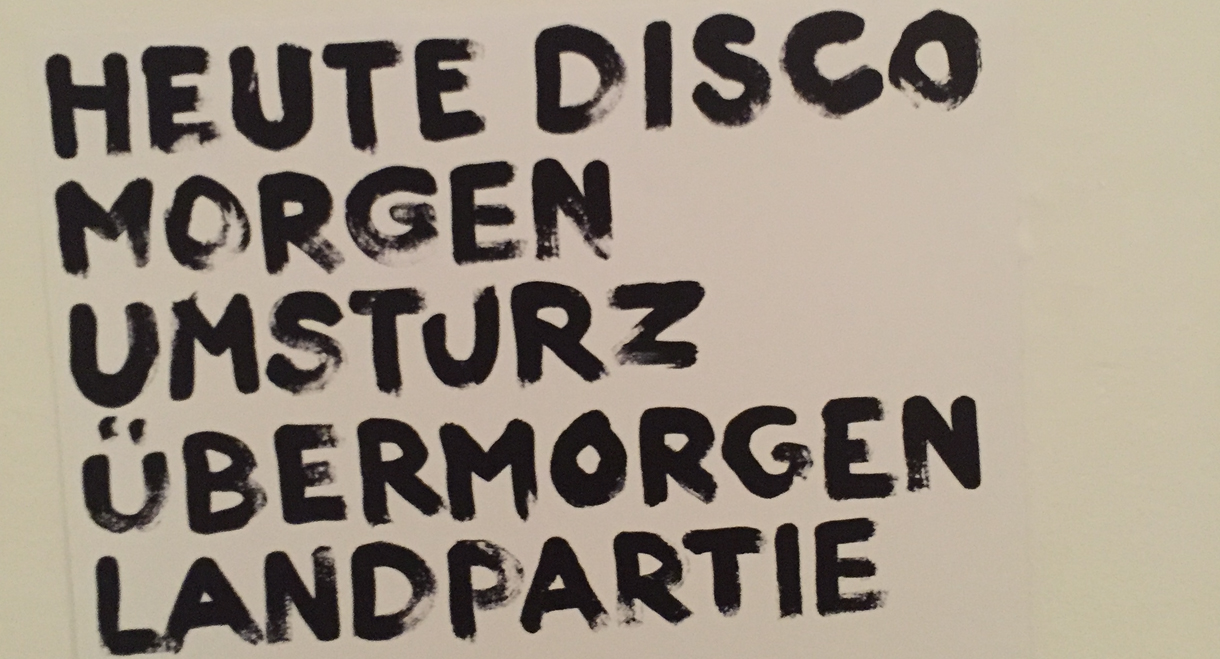 HEUTE DISCO
MORGEN
UMSTURZ
ÜBERMORGEN
LANDPARTIE